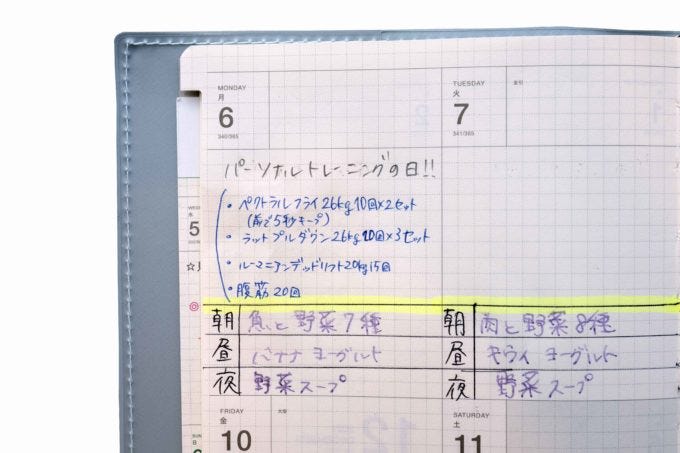 MONDAY
月
6
340/365
TUESDAY
火
7
341/365
索引
パーソナルトレーニングの日!!
・ペクトラルフライ26kg10回×2セット
(前で5秒キープ)
・ラットプルダウン26kg10回×3セット
・ルーマニアンデッドリフト20kg15回
・腹筋20回
朝 魚と野菜7種
昼 バナナ ヨーグルト
夜 野菜スープ
朝 肉と野菜8種
昼 キウイ ヨーグルト
夜 野菜スープ
水
5
FRIDAY
金
10
大安
SATURDAY
土
11
SUN